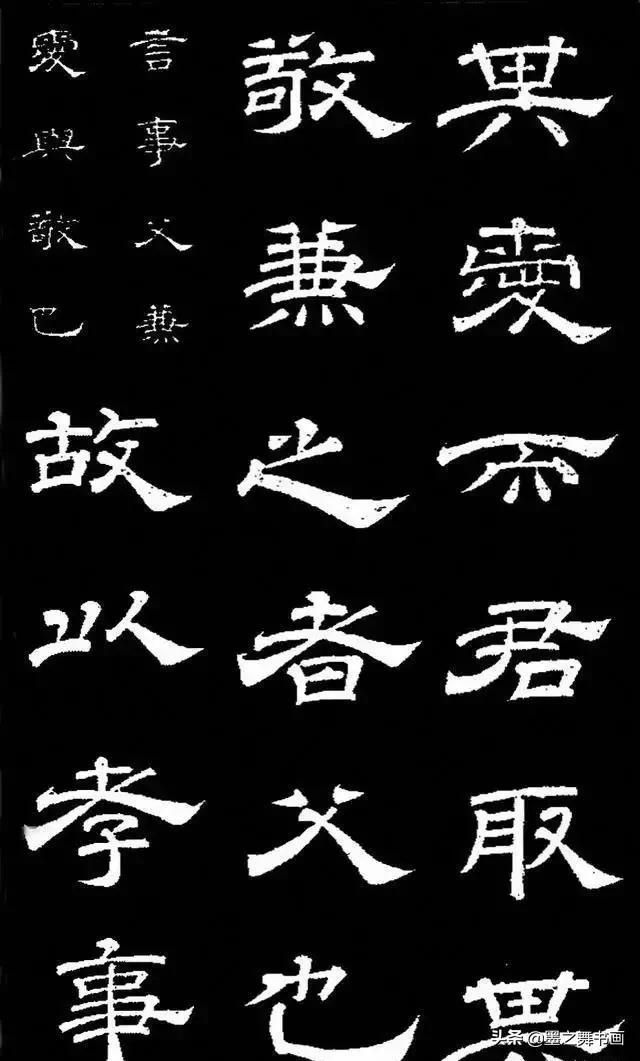 其愛而君取其
敬兼之者父也
言事父兼
愛與敬也
故以孝事
头条 @墨之舞书画